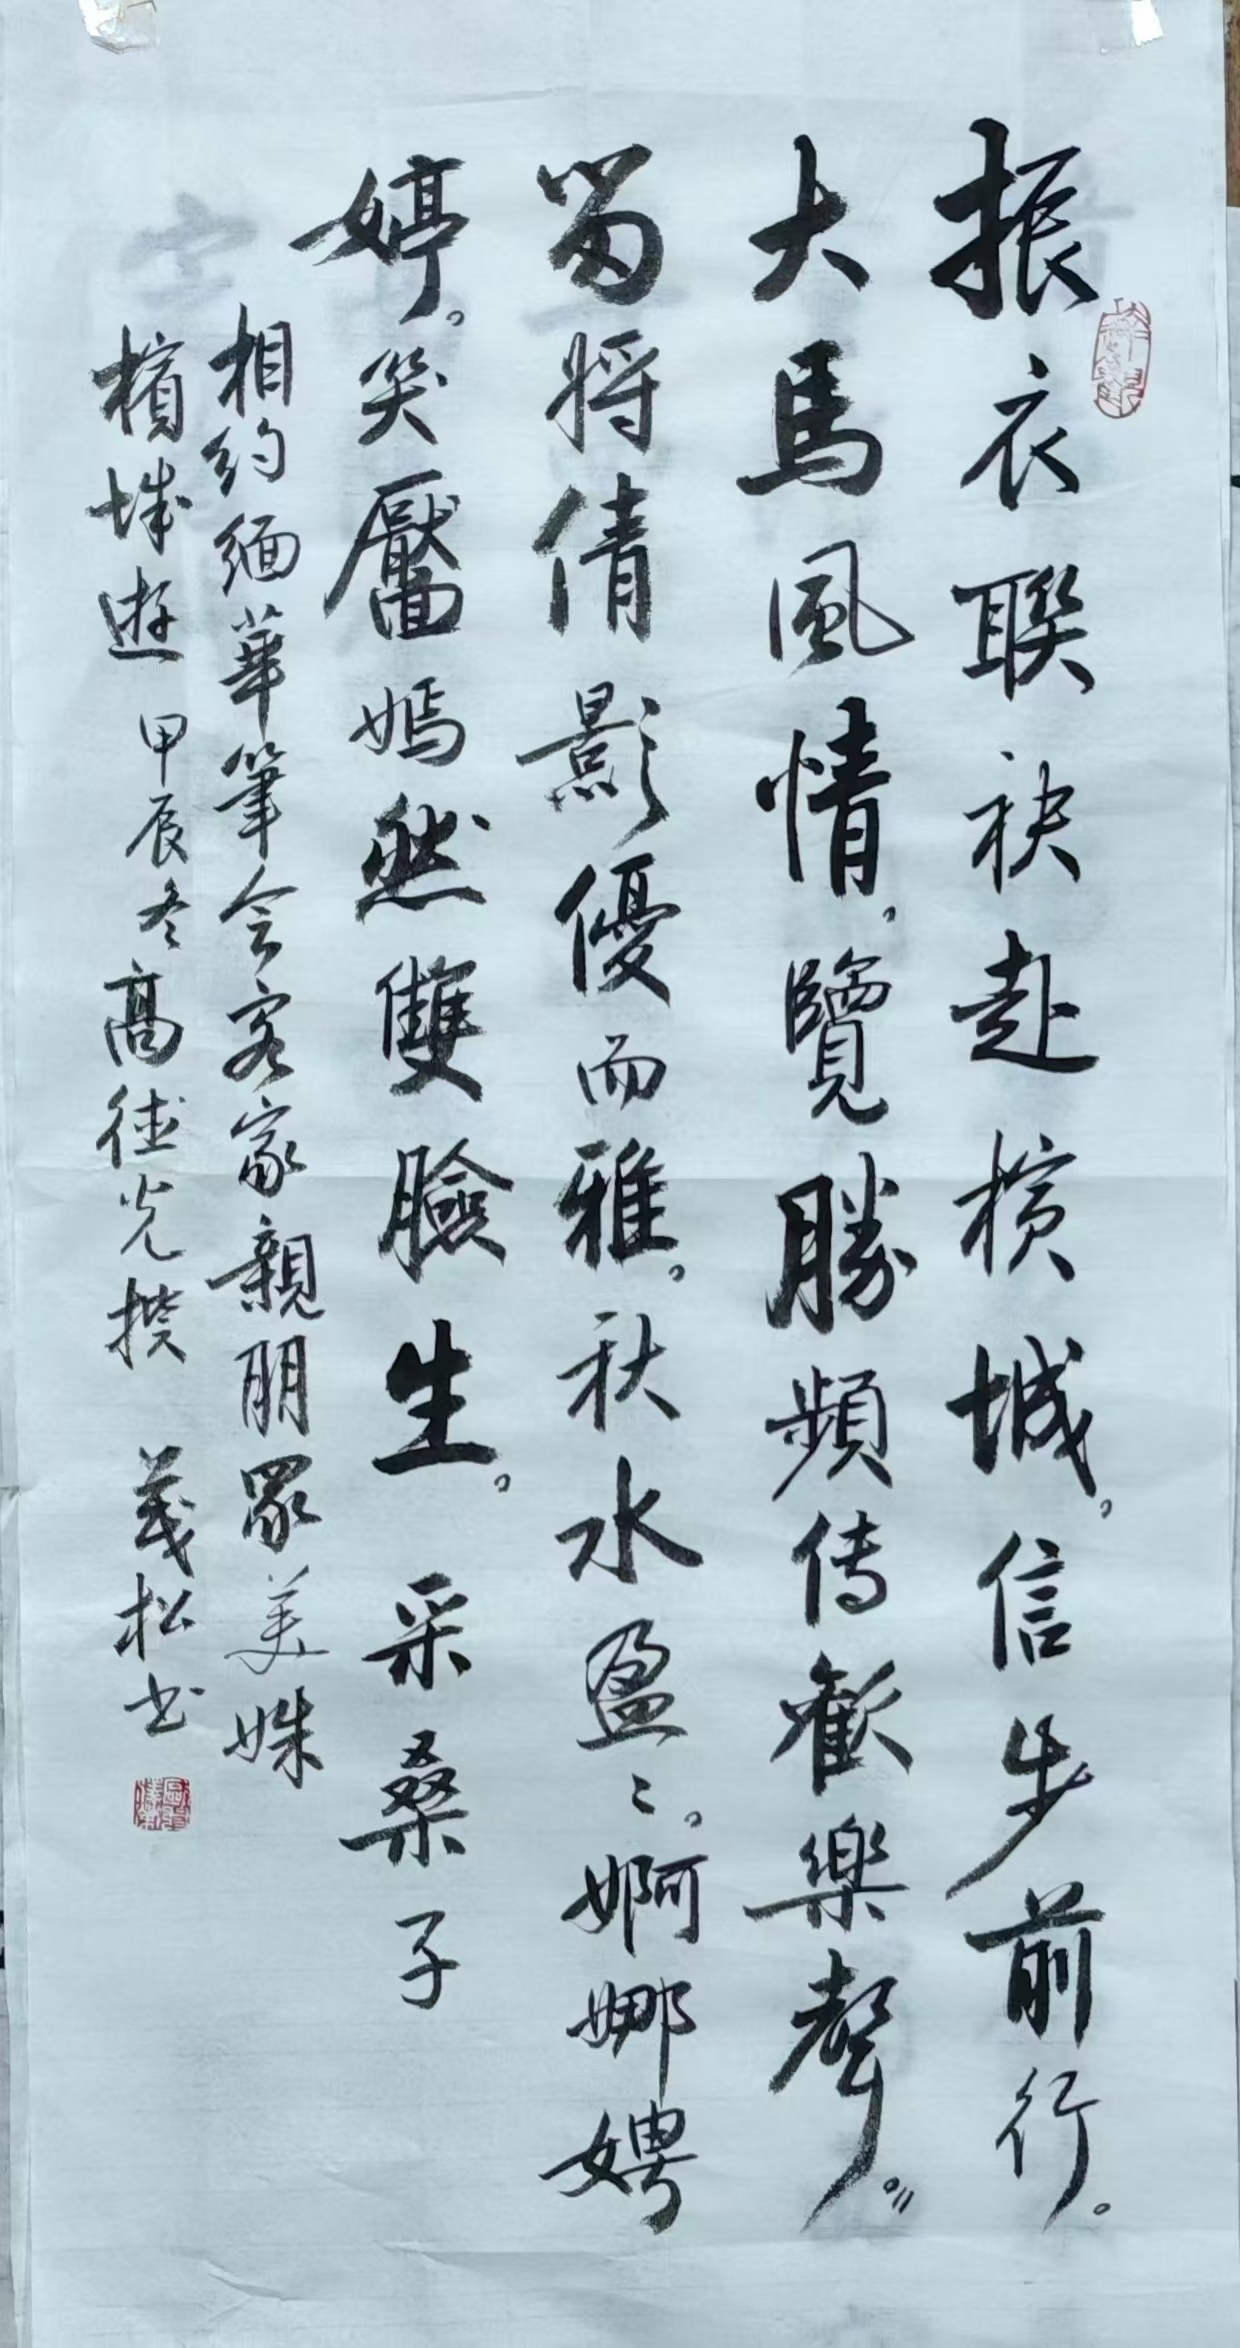 振衣聯袂赴檳城。信步前行。
大馬風情。覽勝頻傳歡樂聲。〃
留將倩影優而雅。秋水盈〻。婀娜娉
婷。笑靨嫣然雙臉生。采桑子
相約緬華筆會客家親朋眾美姝
檳城遊 甲辰冬高德光撰 義松书